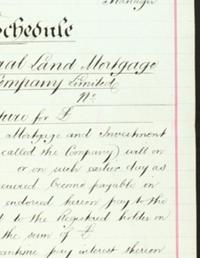 Manager
Schedule
Land Mortgage
Company Limited
No
for £
Mortgage and Investment
called the Company) will on
or on such earlier day as
become payable in
endorsed hereon pay to the
to the Registered holder in
the sum of £
pay interest thereon